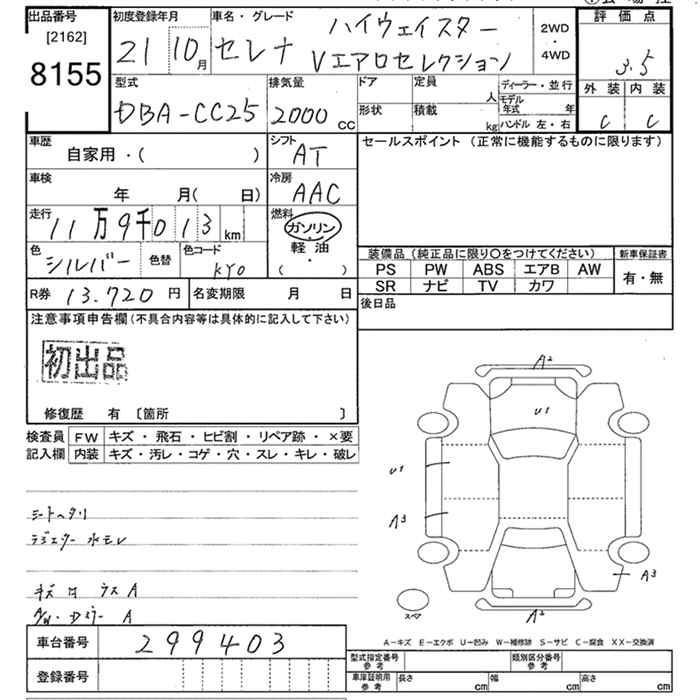 出品番号 初度登録年月 車名・グレード 評価点
[2162]
8155
21 10月 セレナ ハイウェイスター
Vエアロセレクション
2WD
・
4WD
3.5
外装 内装
C C
型式 排気量 ドア 定員 人 ディーラー・並行
DBA-CC25 2000cc 形状 積載 kg モデル年式 年
ハンドル 左・右
車歴 シフト セールスポイント (正常に機能するものに限ります)
自家用・( ) AT
車検 冷房
年 月( 日) AAC
走行 燃料
11万9千013km ガソリン
軽油
・
( )
色 色替 色コード
シルバー KY0
装備品(純正品に限り○をつけてください) 新車保証書
PS PW ABS エアB AW 有・無
SR ナビ TV カワ
R券 13.720円 名変期限 月 日 後日品
注意事項申告欄(不具合内容等は具体的に記入して下さい)
初出品
修復歴 有 〔箇所 〕
検査員 FW キズ・飛石・ヒビ割・リペア跡・×要
記入欄 内装 キズ・汚レ・コゲ・穴・スレ・キレ・破レ
A2
U1
U1
A3
A3
A2
スペア
シートヘタリ
ラジエター水モレ
A-キズ E-エクボ U-凹み W-補修跡 S-サビ C-腐食 XX-交換済
車台番号 299403
登録番号
型式指定番号 参考 類別区分番号 参考
車庫証明用 参考 長さ cm 幅 cm 高さ cm